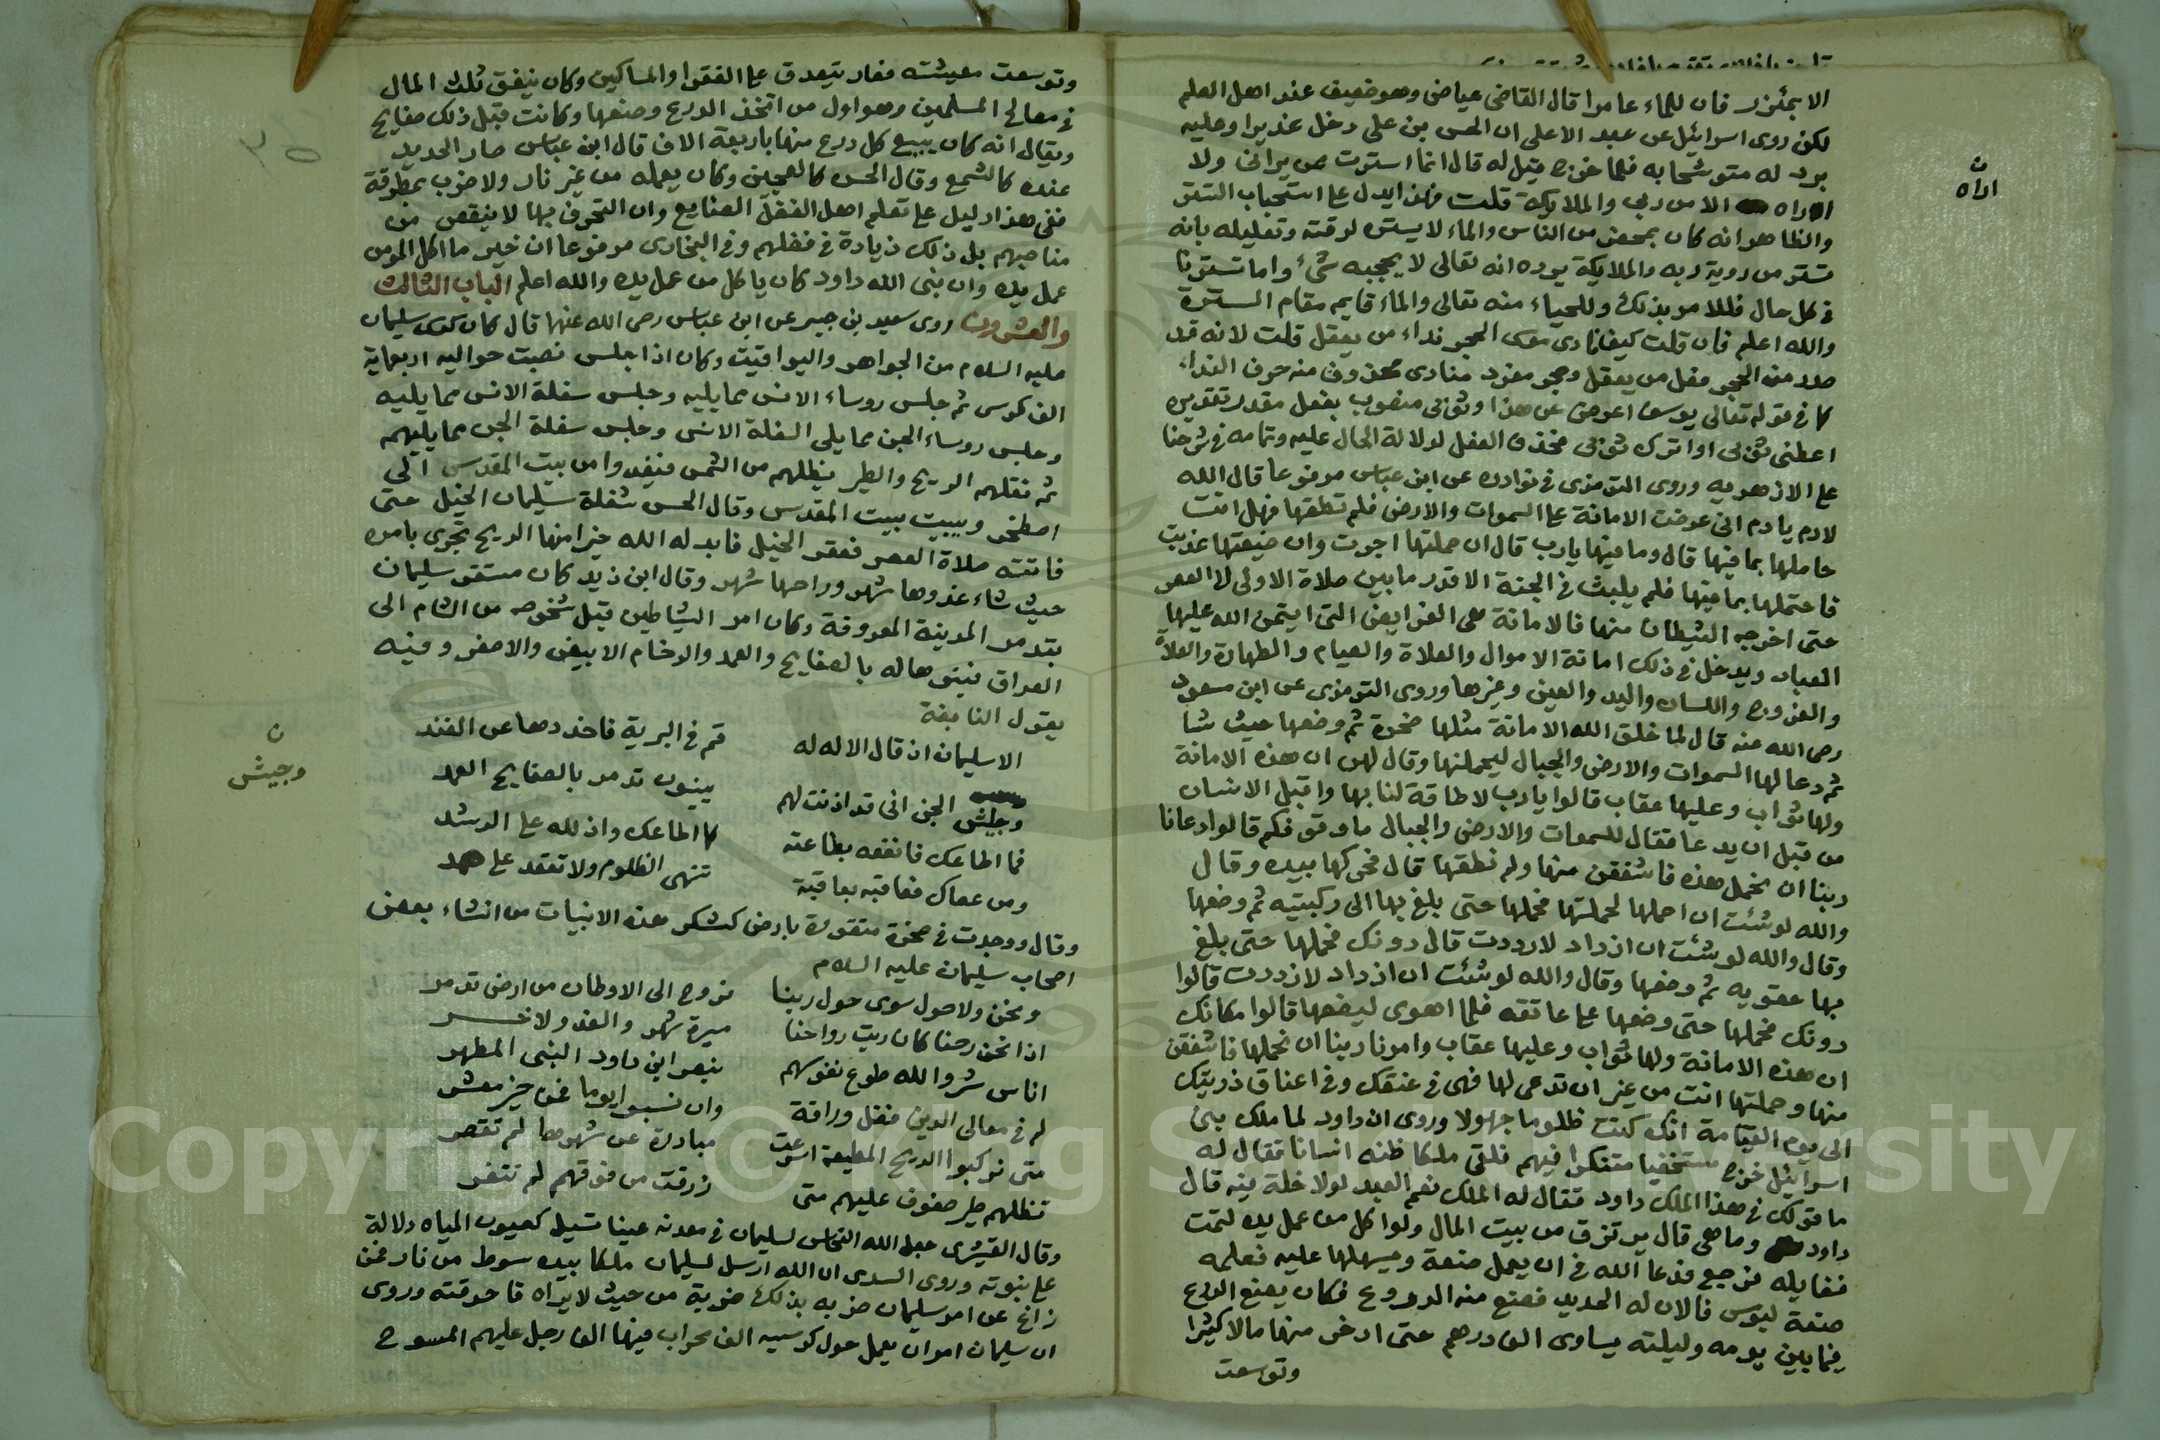 الا بمئزر فان للماء عامرا قال القاضى عياض وهو ضعيف عند اهل العلم
لكن روى اسرائيل عن عبد الاعلى ان الحسن بن على دخل غديرا وعليه
برد له متوشحا به فلما خرج قيل له قال انما استرت ممن يرانى ولا
اراه الا من ربى والملايكة قلت فهذا يدل على استحباب التستر
والظاهر انه كان بمحضر من الناس والماء لا يستره لرقته وتعليله بانه
تستر من روية ربه والملايكة يرده انه تعالى لا يحجبه شئ واما تسترنا
فى كل حال فللامر بذلك وللحياء منه تعالى والماء قايم مقام السترة
والله اعلم فان قلت كيف نادى موسى الحجر نداء من يعقل قلت لانه قد
صدر من الحجر فعل من يعقل وحجر مفرد منادى محذوف منه حرف النداء
كما فى قوله تعالى يوسف اعرض عن هذا وثوبى منصوب بفعل مقدر تقديره
اعطنى ثوبى او اترك ثوبى فحذف الفعل لدلالة الحال عليه وتمامه فى شرحنا
على الازهريه وروى الترمذى فى نوادره عن ابن عباس مرفوعا قال الله
لادم يا ادم انى عرضت الامانة على السموات والارض فلم تطقها فهل انت
حاملها بما فيها قال وما فيها يارب قال ان حملتها اجرت وان ضيعتها عذبت
فاحتملها بما فيها فلم يلبث فى الجنة الا قدر ما بين صلاة الاولى الى العصر
حتى اخرجه الشيطان منها فالامانة هى الفرايض التى ايتمن الله عليها
العباد ويدخل فى ذلك امانة الاموال والصلاة والصيام والطهارة والصلاة
والفروج واللسان واليد والعين وغيرها وروى الترمذى عن ابن مسعود
رضى الله عنه قال لما خلق الله الامانة مثلها صخرة ثم وضعها حيث شا
ثم دعا لها السموات والارض والجبال ليحملنها وقال لهن ان هذه الامانة
ولها ثواب وعليها عقاب قالوا يارب لا طاقة لنا بها واقبل الانسان
من قبل ان يدعا فقال للسموات والارض والجبال ما وقوفكم قالوا دعانا
ربنا ان نحمل هذه فاشفقن منها ولم نطقها قال فحركها بيده وقال
والله لو شئت ان احملها لحملتها فحملها حتى بلغ بها الى ركبتيه ثم وضعها
وقال والله لو شئت ان ازداد لازددت قال دونك فحملها حتى بلغ
بها حقويه ثم وضعها وقال والله لو شئت ان ازداد لازددت قالوا
دونك فحملها حتى وضعها على عاتقه فلما اهوى ليضعها قالوا مكانك
ان هذه الامانة ولها ثواب وعليها عقاب وامرنا ربنا ان نحملها فاشفقن
منها وحملتها انت من غير ان تدعى لها فهى فى عنقك وفى اعناق ذريتك
الى يوم القيامة انك كنت ظلوما جهولا وروى ان داود لما ملك بنى
اسرائيل خرج مستخفيا متنكرا فيهم فلقى ملكا ظنه انسانا فقال له
ما قولك فى هذا الملك داود فقال له الملك نعم العبد لولا خلة فيه قال
داود وما هى قال يرتزق من بيت المال ولو اكل من عمل يده لتمت
فضايله فرجع فدعا الله فى ان يعمل صنعة ويسهلها عليه فعلمه
صنعة لبوس فالان له الحديد فصنع منه الدروع فكان يصنع الدرع
فيما بين يومه وليلته يساوى الف درهم حتى ادخر منها مالا كثيرا
وتوسعت
ن
اراه
وتوسعت معيشته فصار يتصدق على الفقرا والمساكين وكان ينفق ثلث المال
فى مصالح المسلمين وهو اول من اتخذ الدرع وصنعها وكانت قبل ذلك صفايح
ويقال انه كان يبيع كل درع منها باربعة الاف قال ابن عباس صار الحديد
عنده كالشمع وقال الحسن كالعجين وكان يعمله من غير نار ولا ضرب بمطرقة
ففى هذا دليل على تعلم اهل الفضل الصنايع وان التحرف بها لا ينقص من
مناصبهم بل ذلك زيادة فى فضلهم وفى البخارى مرفوعا ان خير ما اكل المرء من
عمل يده وان نبى الله داود كان ياكل من عمل يده والله اعلم الباب الثالث
والعشرون روى سعيد بن جبير عن ابن عباس رضى الله عنهما قال كان كرسى سليمان
عليه السلام من الجواهر واليواقيت وكان اذا جلس نصبت حواليه اربعماية
الف كرسى ثم جلس روساء الانس مما يليه وجلس سفلة الانس مما يليه
وجلس روساء الجن مما يلى السفلة الانس وجلس سفلة الجن مما يليهم
ثم تقلهم الريح والطير يظلهم من الشمس فيغدوا من بيت المقدس الى
اصطخر ويبيت ببيت المقدس وقال الحسن شغلة سليمان الخيل حتى
فاتته صلاة العصر فعقر الخيل فابدله الله خيرا منها الريح تجرى بامره
حيث شاء غدوها شهر ورواحها شهر وقال ابن زيد كان مستقر سليمان
بتدمر المدينة المعروفة وكان امر الشياطين قبل شخوصه من الشام الى
العراق فبنوها له بالصفايح والعمد والرخام الابيض والاصفر وفيه
يقول النابغة
الا سليمان اذ قال الاله له قم فى البرية فاحددها عن الفند
وجيش الجن انى قد اذنت لهم يبنون تدمر بالصفايح العمد
فما اطاعك فانفعه بطاعته كما اطاعك وادلله على الرشد
ومن عصاك فعاقبه بعاقبة تنهى الظلوم ولا تقعد على ضمد
وقال ووجدت فى صخرة منقورة بارض كسكر هذه الابيات من انشاء بعض
اصحاب سليمان عليه السلام
ونحن ولا حول سوى حول ربنا نروح الى الاوطان من ارض تدمر
اذا نحن رحنا كان ريث رواحنا مسيرة شهر والغدو لاخر
اناس شروا لله طوع نفوسهم بنصر ابن داود النبى المطهر
لهم فى معالى الدين فضل ورافة وان نسبوا يوما فمن خير معشر
متى تركبوا الريح المطيعة اسرعت مبادرة عن شهرها لم تقصر
تظلهم طير صفوف عليهم متى رفرفت من فوقهم لم تنفر
وقال القشيرى جعل الله النحاس لسليمان فى معدنه عينا تسيل كعيون المياه دلالة
على نبوته وروى السدى ان الله ارسل لسليمان ملكا بيده سوط من نار فمن
زاغ عن امر سليمان ضربه بذلك ضربة من حيث لا يراه فاحرقته وروى
ان سليمان امر ان يعمل حول كرسيه الف محراب فيها الف رجل عليهم المسوح
ن
وجيش
٣٥
Copyright © King Saud University